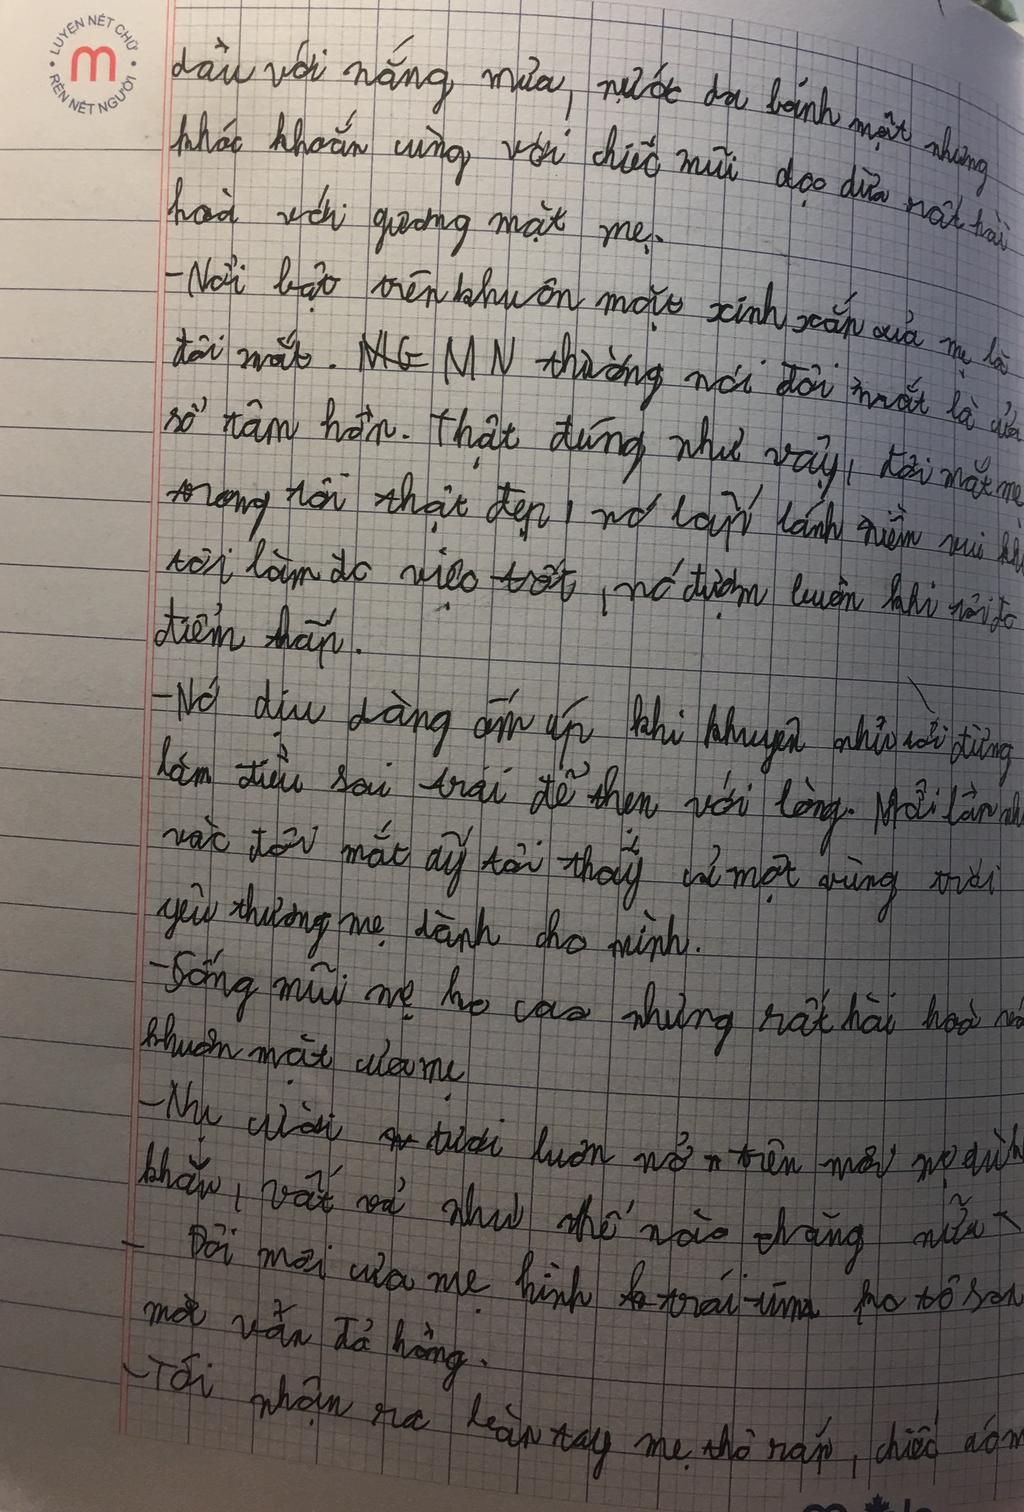 LUYỆN NÉT CHỮ
m
RÈN NẾT NGƯỜI
dầu với nắng mưa, nước da bánh mật nhưng
khoắn cùng với chiếc mũi dọc dừa rất hài
hoà với gương mặt mẹ.
-Nổi bật trên khuôn mặt xinh xắn của mẹ là
đôi mắt. MN thường nói đôi mắt là cửa
sổ tâm hồn. Thật đúng như vậy, đôi mắt mẹ
trong tôi thật đẹp, nó lánh niềm vui khi
tôi làm đc việc tốt, nó đượm buồn khi tôi đc
điểm thấp.
-Nó dịu dàng ấm áp khi khuyên nhủ tôi đừng
làm điều sai trái để thẹn với lòng. Mỗi lần
vào đôi mắt ấy tôi thấy cả một vùng trời
yêu thương mẹ dành cho mình.
-Sống mũi mẹ ko cao nhưng rất hài hoà
khuôn mặt của mẹ
-Nụ cười tươi luôn nở trên môi mẹ
khăn, vất vả như thế nào chăng nữa
- Đôi môi của mẹ hình trái tim ko tô son
mà vẫn đỏ hồng.
-Tôi nhận ra bàn tay mẹ thô ráp, chiếc